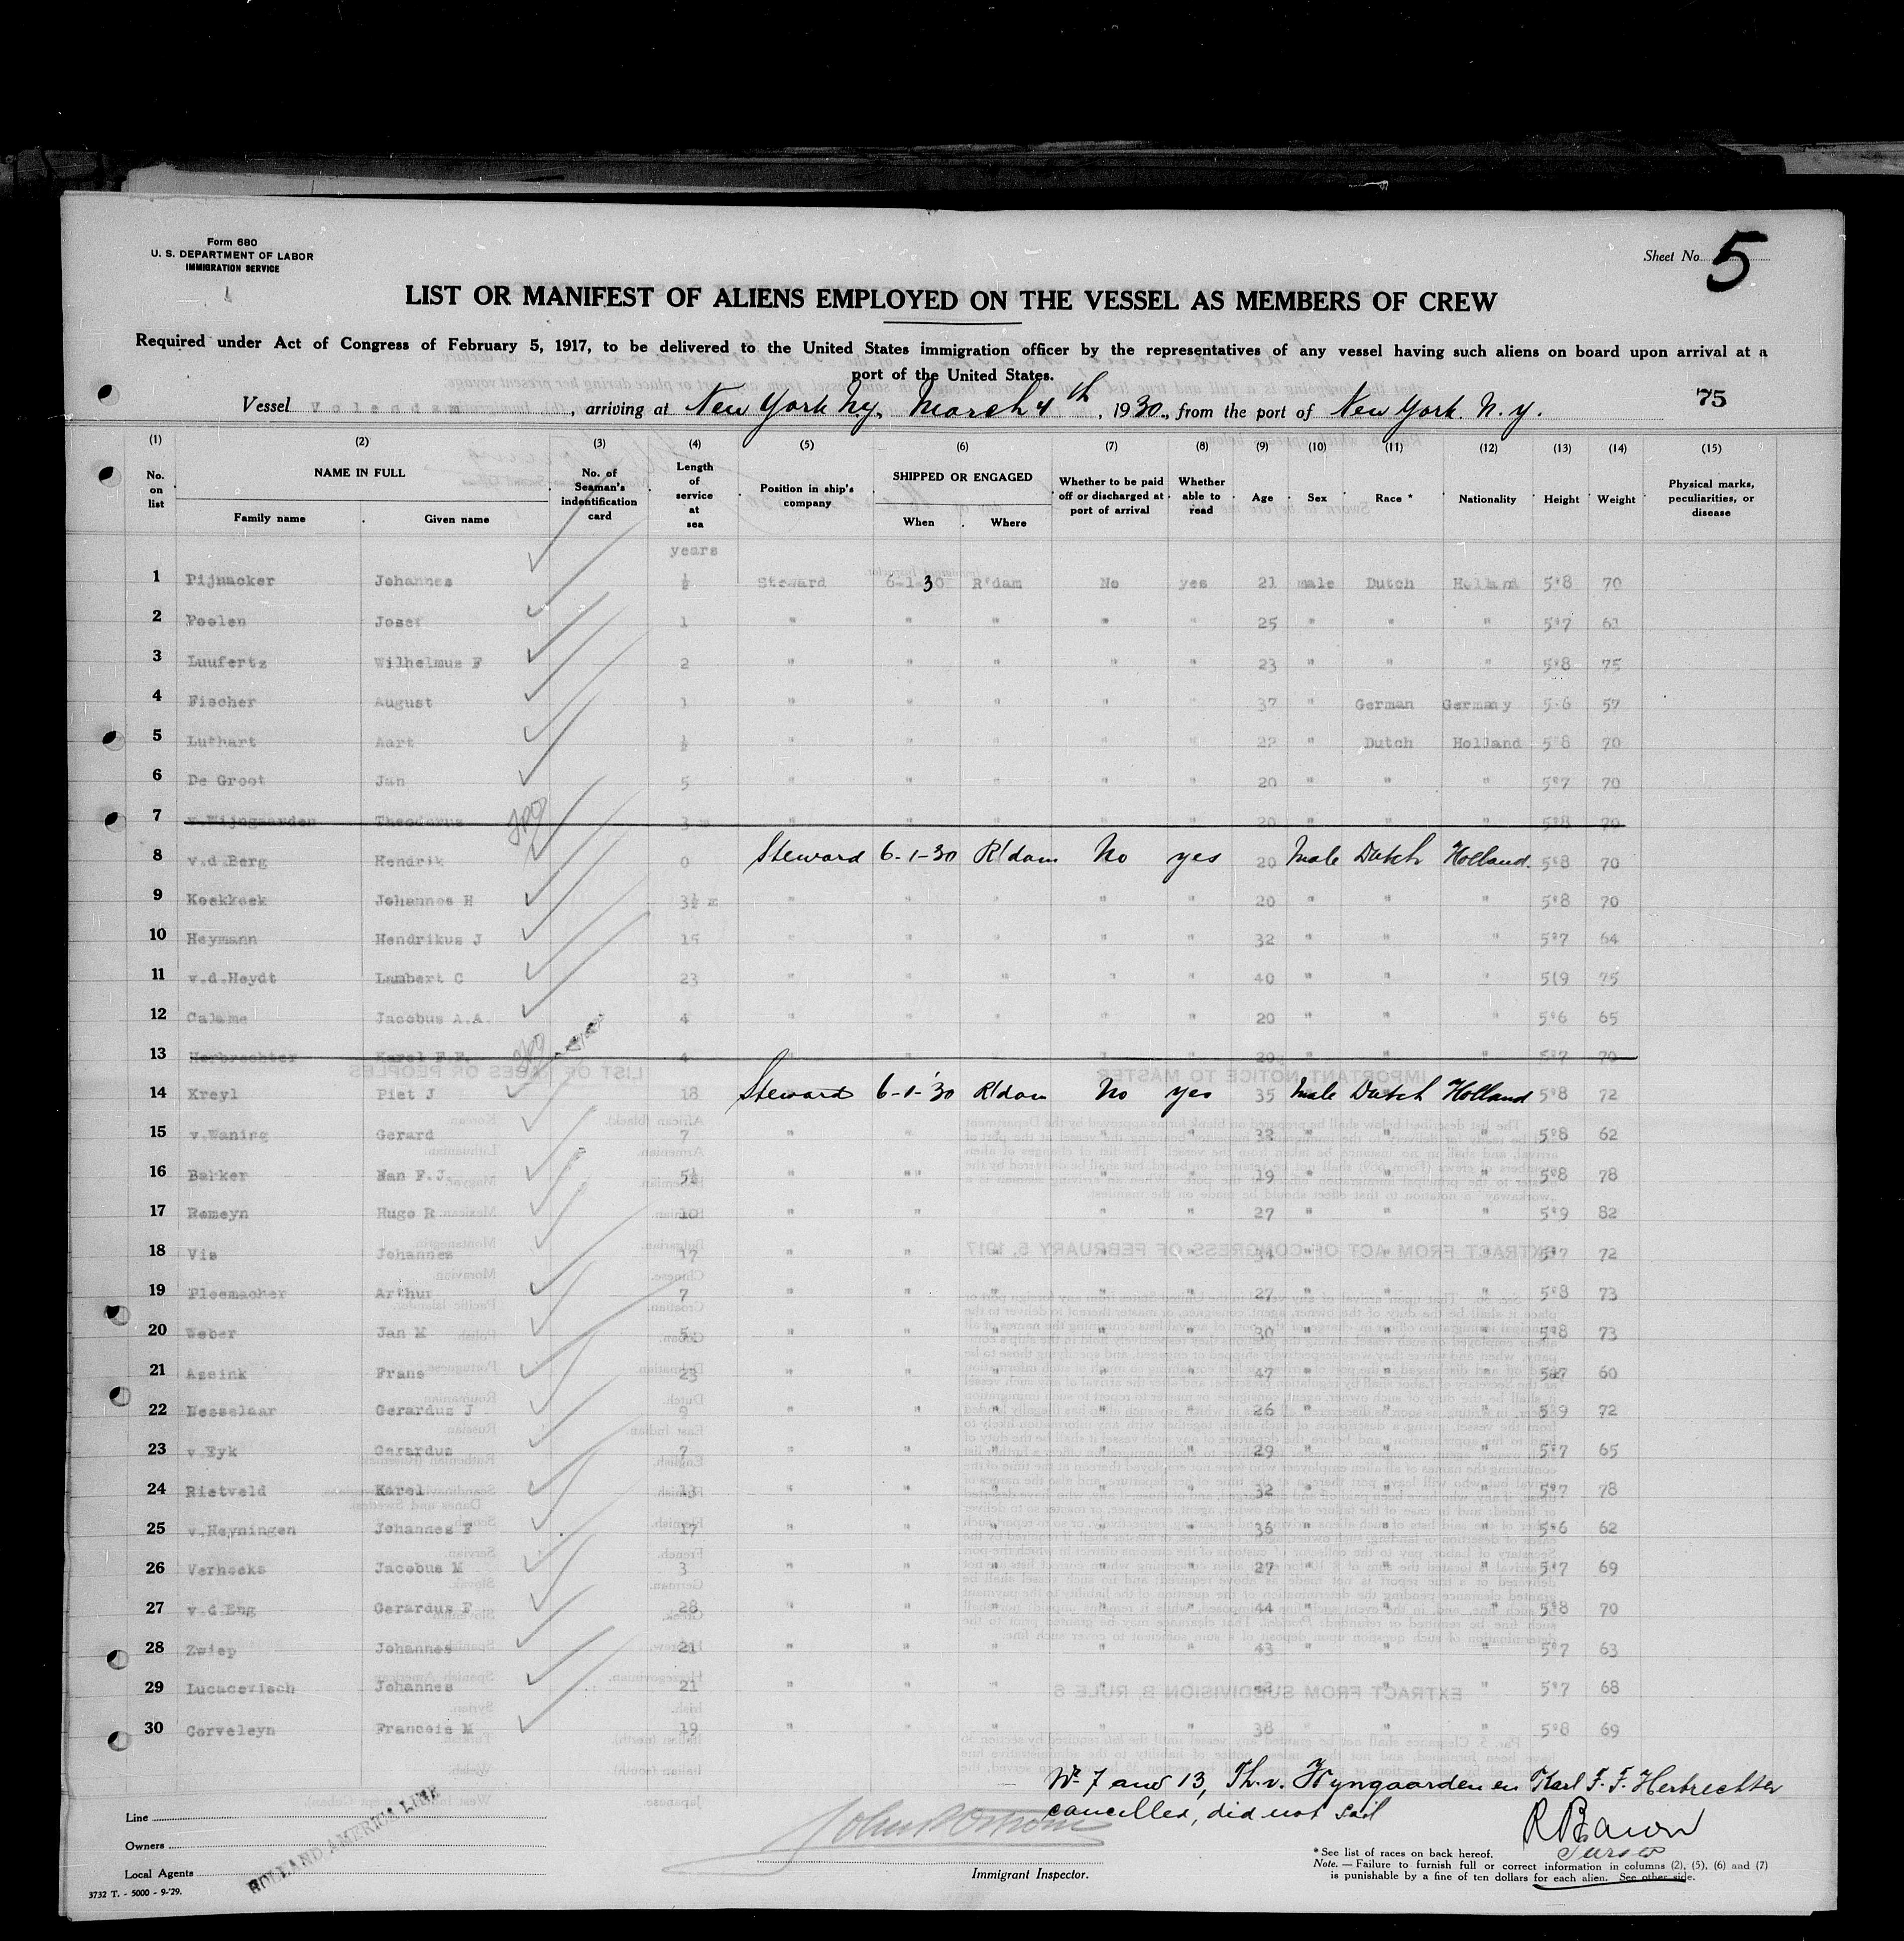 Form 680
U. S. DEPARTMENT OF LABOR
IMMIGRATION SERVICE
Sheet No. 5
LIST OR MANIFEST OF ALIENS EMPLOYED ON THE VESSEL AS MEMBERS OF CREW
Required under Act of Congress of February 5, 1917, to be delivered to the United States immigration officer by the representatives of any vessel having such aliens on board upon arrival at a
port of the United States.
75
Vessel Volendam, arriving at New York Ny, March 4th, 1930, from the port of New York. N.y.
(1) (2) (3) (4) (5) (6) (7) (8) (9) (10) (11) (12) (13) (14) (15)
No. on list NAME IN FULL Family name Given name No. of Seaman's indentification card Length of service at sea Position in ship's company SHIPPED OR ENGAGED When Where Whether to be paid off or discharged at port of arrival Whether able to read Age Sex Race * Nationality Height Weight Physical marks, peculiarities, or disease
years
1 Pijnacker Johannes ½ Steward 6-1-30 R'dam No yes 21 male Dutch Holland 5'8 70
2 Poolen Josef 1 " " " " " 25 " " " 5'7 63
3 Luufertz Wilhelmus F 2 " " " " " 23 " " " 5'8 75
4 Fischer August 1 " " " " " 37 " German Germany 5-6 57
5 Luthart Aart ½ " " " " " 22 " Dutch Holland 5'8 70
6 De Groot Jan 5 " " " " " 20 " " " 5'7 70
7 v.Wijngaarden Theodorus 3 m " " " " " 20 " " " 5'8 70
8 v.d.Berg Hendrik 0 Steward 6-1-30 R'dam No yes 20 Male Dutch Holland. 5'8 70
9 Koekkoek Johannes H 3½ m " " " " " 20 " " " 5'8 70
10 Heymann Hendrikus J 15 " " " " " 32 " " " 5'7 64
11 v.d.Heydt Lambert C 23 " " " " " 40 " " " 5'9 75
12 Calame Jacobus A.A. 4 " " " " " 20 " " " 5'6 65
13 Herbrechter Karel F.F. 4 " " " " " 20 " " " 5'7 70
14 Kreyl Piet J 18 Steward 6-1-'30 R'dam No yes 35 Male Dutch Holland 5'8 72
15 v.Waning Gerard 7 " " " " " 32 " " " 5'8 62
16 Bakker Nan F.J. 5½ " "" " " 19 " " " 5'8 78
17 Romeyn Hugo R 10 " " " " 27 " " " 5'9 82
18 Vis Johannes 17 " " " " " 34 " " " 5'7 72
19 Ploemacher Arthur 7 " " " " " 27 " " " 5'8 73
20 Weber Jan M 5 " " " " " 30 " " " 5'8 73
21 Assink Frans 23 " " " " " 47 " " " 5'7 60
22 Nesselaar Gerardus J 9 " " " " " 26 " " " 5'9 72
23 v.Eyk Gerardus 7 " " " " " 29 " " " 5'7 65
24 Rietveld Karel 13 " " " " " 32 " " " 5'7 78
25 v.Heyningen Johannes F 17 " " " " " 36 " " " 5'6 62
26 Verhoeks Jacobus M 3 " " " " " 27 " " " 5'7 69
27 v.d Eng Gerardus F 28 " " " " " 44 " " " 5'8 70
28 Zwiep Johannes 21 " " " " " 43 " " " 5'7 63
29 Lucacevisch Johannes 21 " " " " " " " " 5'7 68
30 Corveleyn Francois M 19 " " " " " 38 " " " 5'8 69
No 7 and 13, Th. v. Wyngaarden en Karl F. F. Herbrechter
cancelled, did not sail
Line
Owners
Local Agents
HOLLAND AMERICA LINE
3732 T. - 5000 - 9-'29.
Immigrant Inspector.
* See list of races on back hereof.
Note. — Failure to furnish full or correct information in columns (2), (5), (6) and (7)
is punishable by a fine of ten dollars for each alien. See other side.